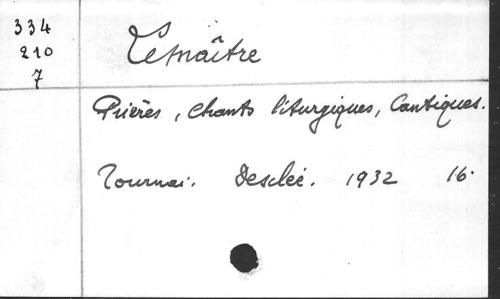 334
210
7
Lemaître
Prières, Chants liturgiques, Cantiques.
Tournai. Desclée. 1932 16.